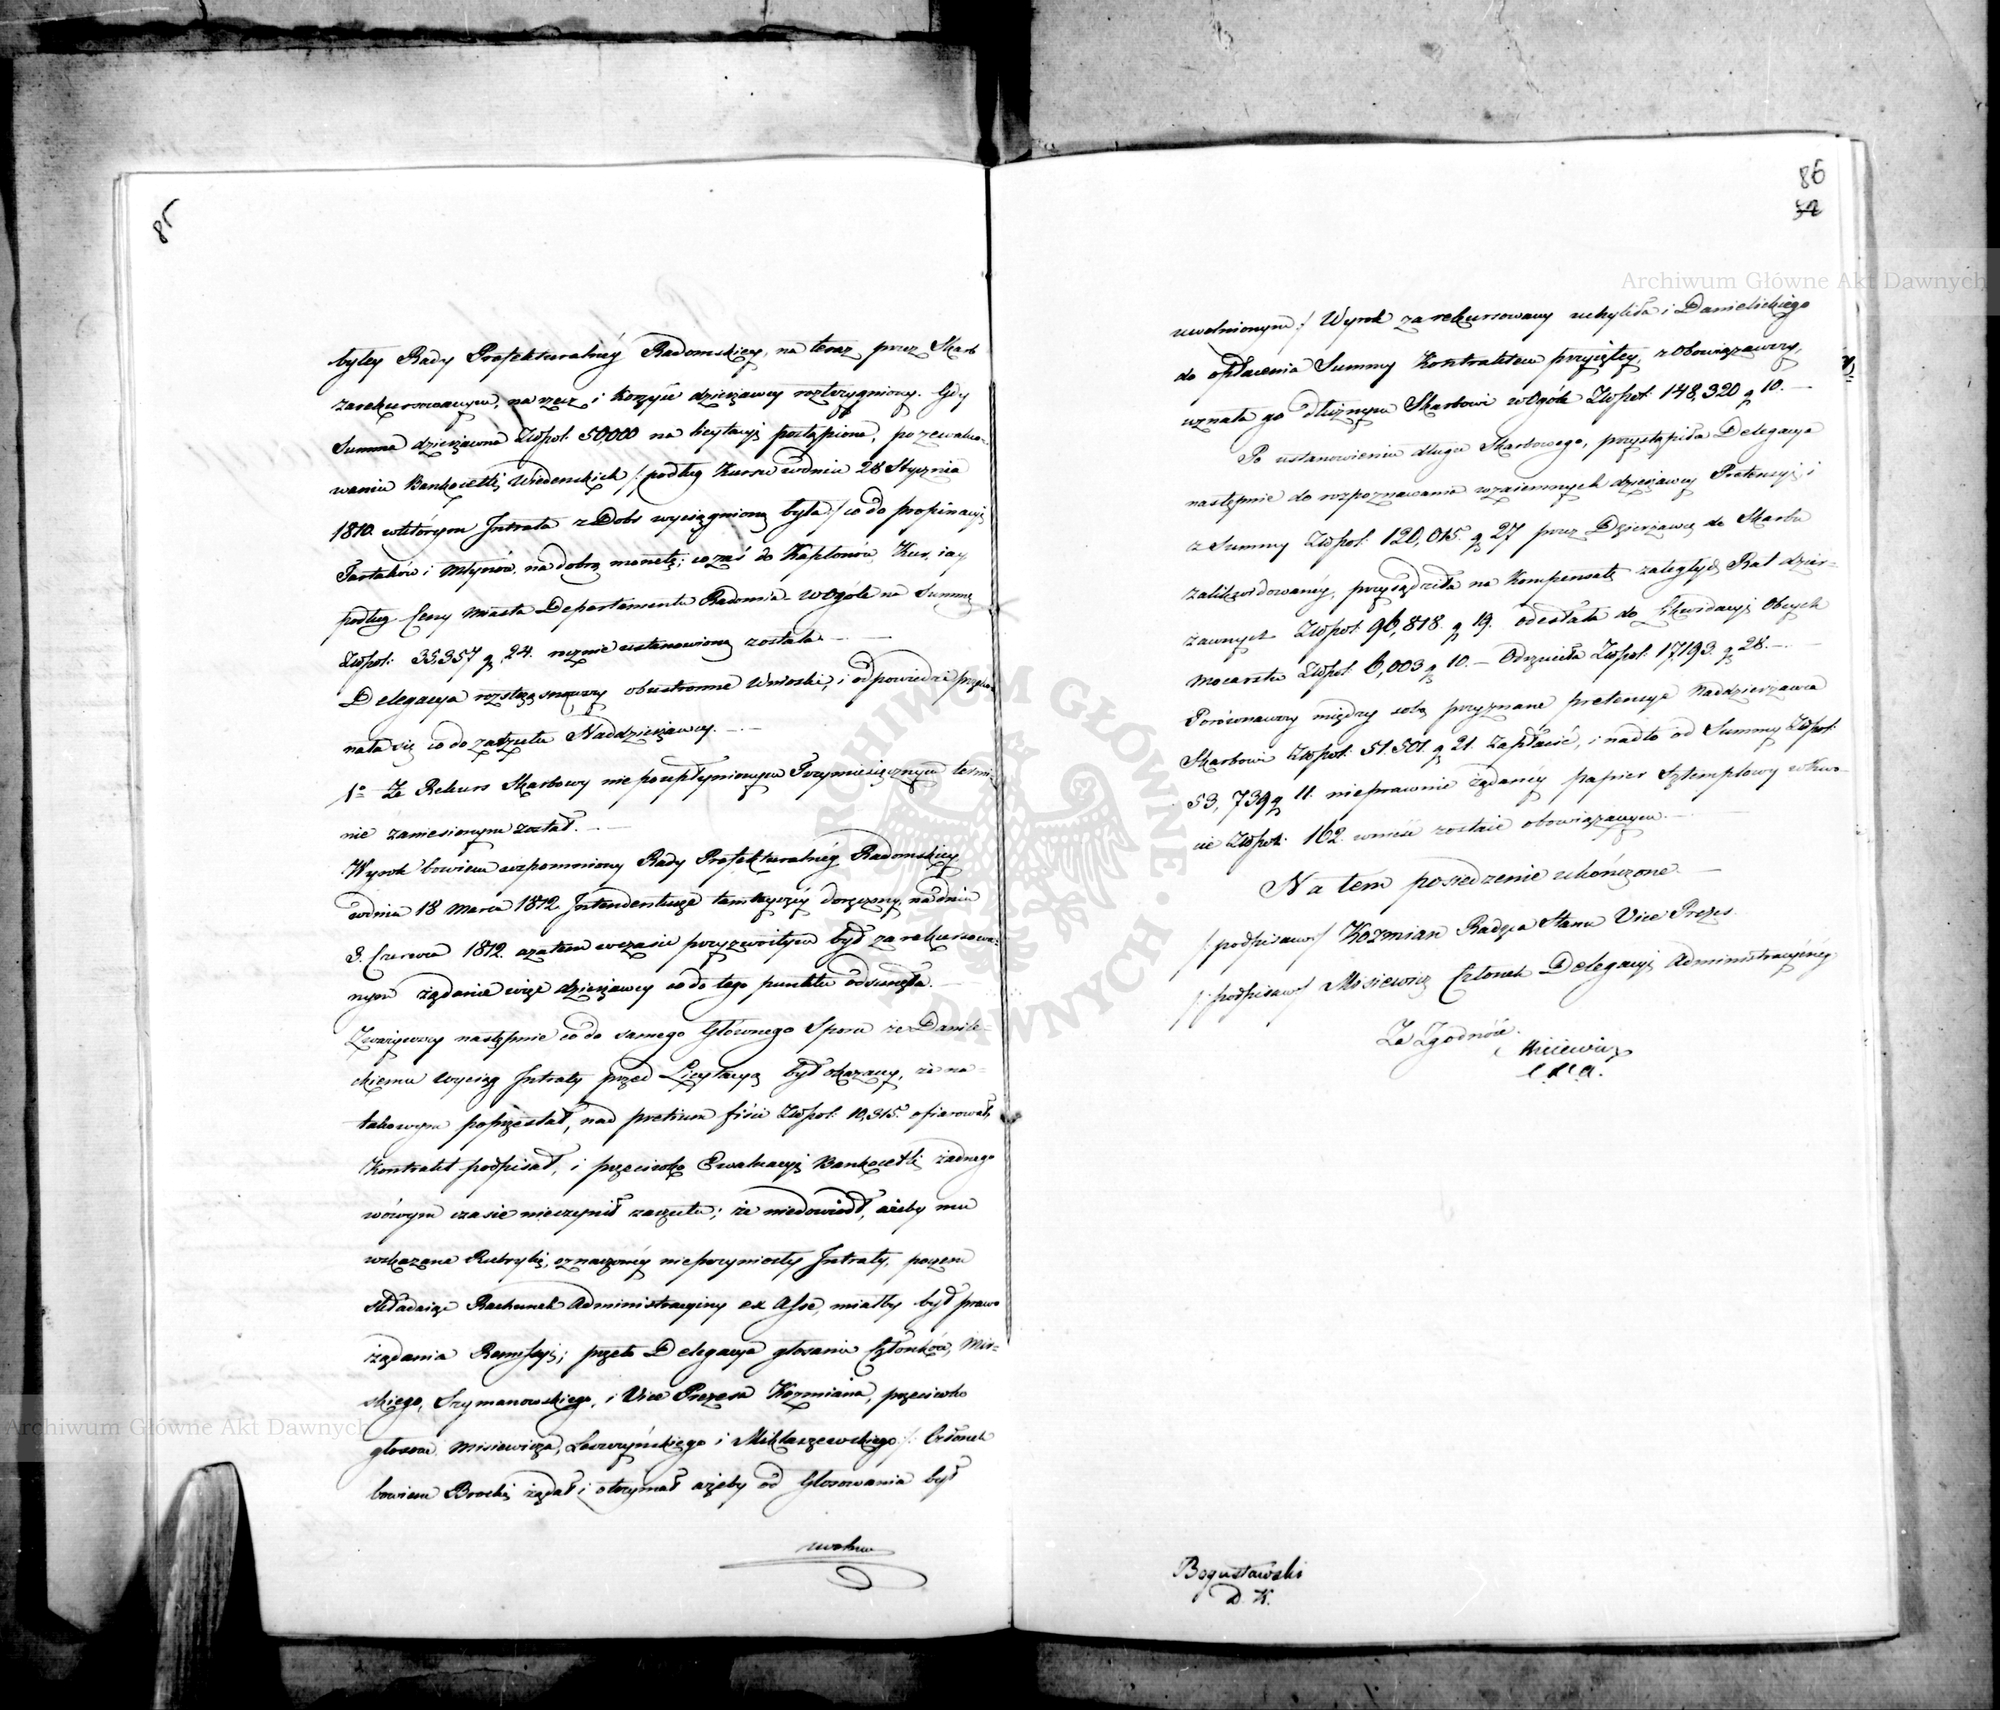 85
byłey Rady Prefekturalnéy Radomskiey, na teraz przez Skarb
zarekursowanym, na rzecz i korzyść dzierżawcy roztrzygniony. Gdy
Summa dzierżawna Złłpol: 50,000 na licytacyi postąpiona, po zewaluo-
waniu Bankocetli Wiedenskich /: podług Kursu w dniu 28 Stycznia
1810. w którym Intrata z Dobr wyciągniona była :/ co do propinacyi
Tartaków i Młynów, na dobrą monetę; co zaś do Kapłonów, Kur, iay
podług Ceny Miasta Departamentu Radomia - w Ogóle na Summę
Złłpol: 35,357 g 24. rocznie ustanowioną została. —
Delegacya roztrząsnąwszy obustronne Wnioski, i odpowiedzi przeko-
nała się co do zarzutu Naddzierżawcy. —
1o Że Rekurs Skarbowy nie po upłynionym Trzymiesięcznym termi-
nie zaniesionym został. —
Wyrok bowiem wzpomniony Rady Prefekturalnéy Radomskiey
w dniu 18 Marca 1812. Intendenturze tamteyszéy doręczony, na dniu
3. Czerwca 1812. a zatem w czasie przyzwoitym był zarekursowa-
nym żądanie więc dzierżawcy co do tego punktu odsunęła. —
Zważywszy następnie co do samego Głównego Sporu że Danile-
ckiemu Wyciąg Intraty przed Licytacyą był okazany, że na
takowym poprzestał, nad pretium fisci Złłpol: 10,315. ofiarował,
Kontrakt podpisał, i przeciwko Ewaluacyi Bankocetli żadnego
wówym czasie nieczynił zarzutu; że niedowiodł, ażeby mu
wskazane Rubryki, oznaczonéy nieprzyniosły Intraty, poczem
składaiąc Rachunek Administracyiny ex Asse, miałby był prawo
żądania Remissyi; przeto Delegacya głosami Członków, Mir-
skiego, Szymanowskiego, i Vice Prezesa Kozmiana, przeciwko
głosom Misiewicza, Leszczyńskiego i Miklaszewskiego /: Członek
bowiem Brocki żądał i otrzymał ażeby od Głosowania był
uwolnio
86
32
uwolnionym :/ Wyrok zarekursowany uchyliła i Danielickiego
do opłacenia Summy Kontraktem przyiętey, zobowiązawszy,
uznała go dłużnym Skarbowi w Ogóle Złłpol: 148,320 g 10. —
Po ustanowieniu długu Skarbowego, przystąpiła Delegacya
następnie do rozpoznawania wzaiemnych dzierżawcy Pretensyi i
z Summy Złłpol: 120,015. g 27 przez Dzierżawcę do Skarbu
zalikwidowanéy, przysądziła na Kompensatę zaległych Rat dzier-
żawnych Złłpol: 96,818. g 19. odesłała do Likwidacyi Obcych
Mocarstw Złłpol: 6,003 g 10. — Odrzuciła Złłpol: 17,193. g 28. —
Porównawszy między sobą przyznane pretensye Naddzierzawca
Skarbowi Złłpol: 51,501. g 21. Zapłacić, i nadto od Summy Złłpol:
53,739 g 11. nieprawnie żądanéy papier Sztemplowy w kwo-
cie Złłpol: 162. wnieść zostaie obowiązanym. —
Na tém posiedzenie ukończone. —
/: podpisano :/ Kozmian Radzca Stanu Vice Prezes.
/: podpisano :/ Misiewicz Członek Delegacyi Administracyinéy
Za Zgodność.
Bogusławski
D. K.
Archiwum Główne Akt Dawnych
Archiwum Główne Akt Dawnych
ARCHIWUM GŁÓWNE AKT DAWNYCH